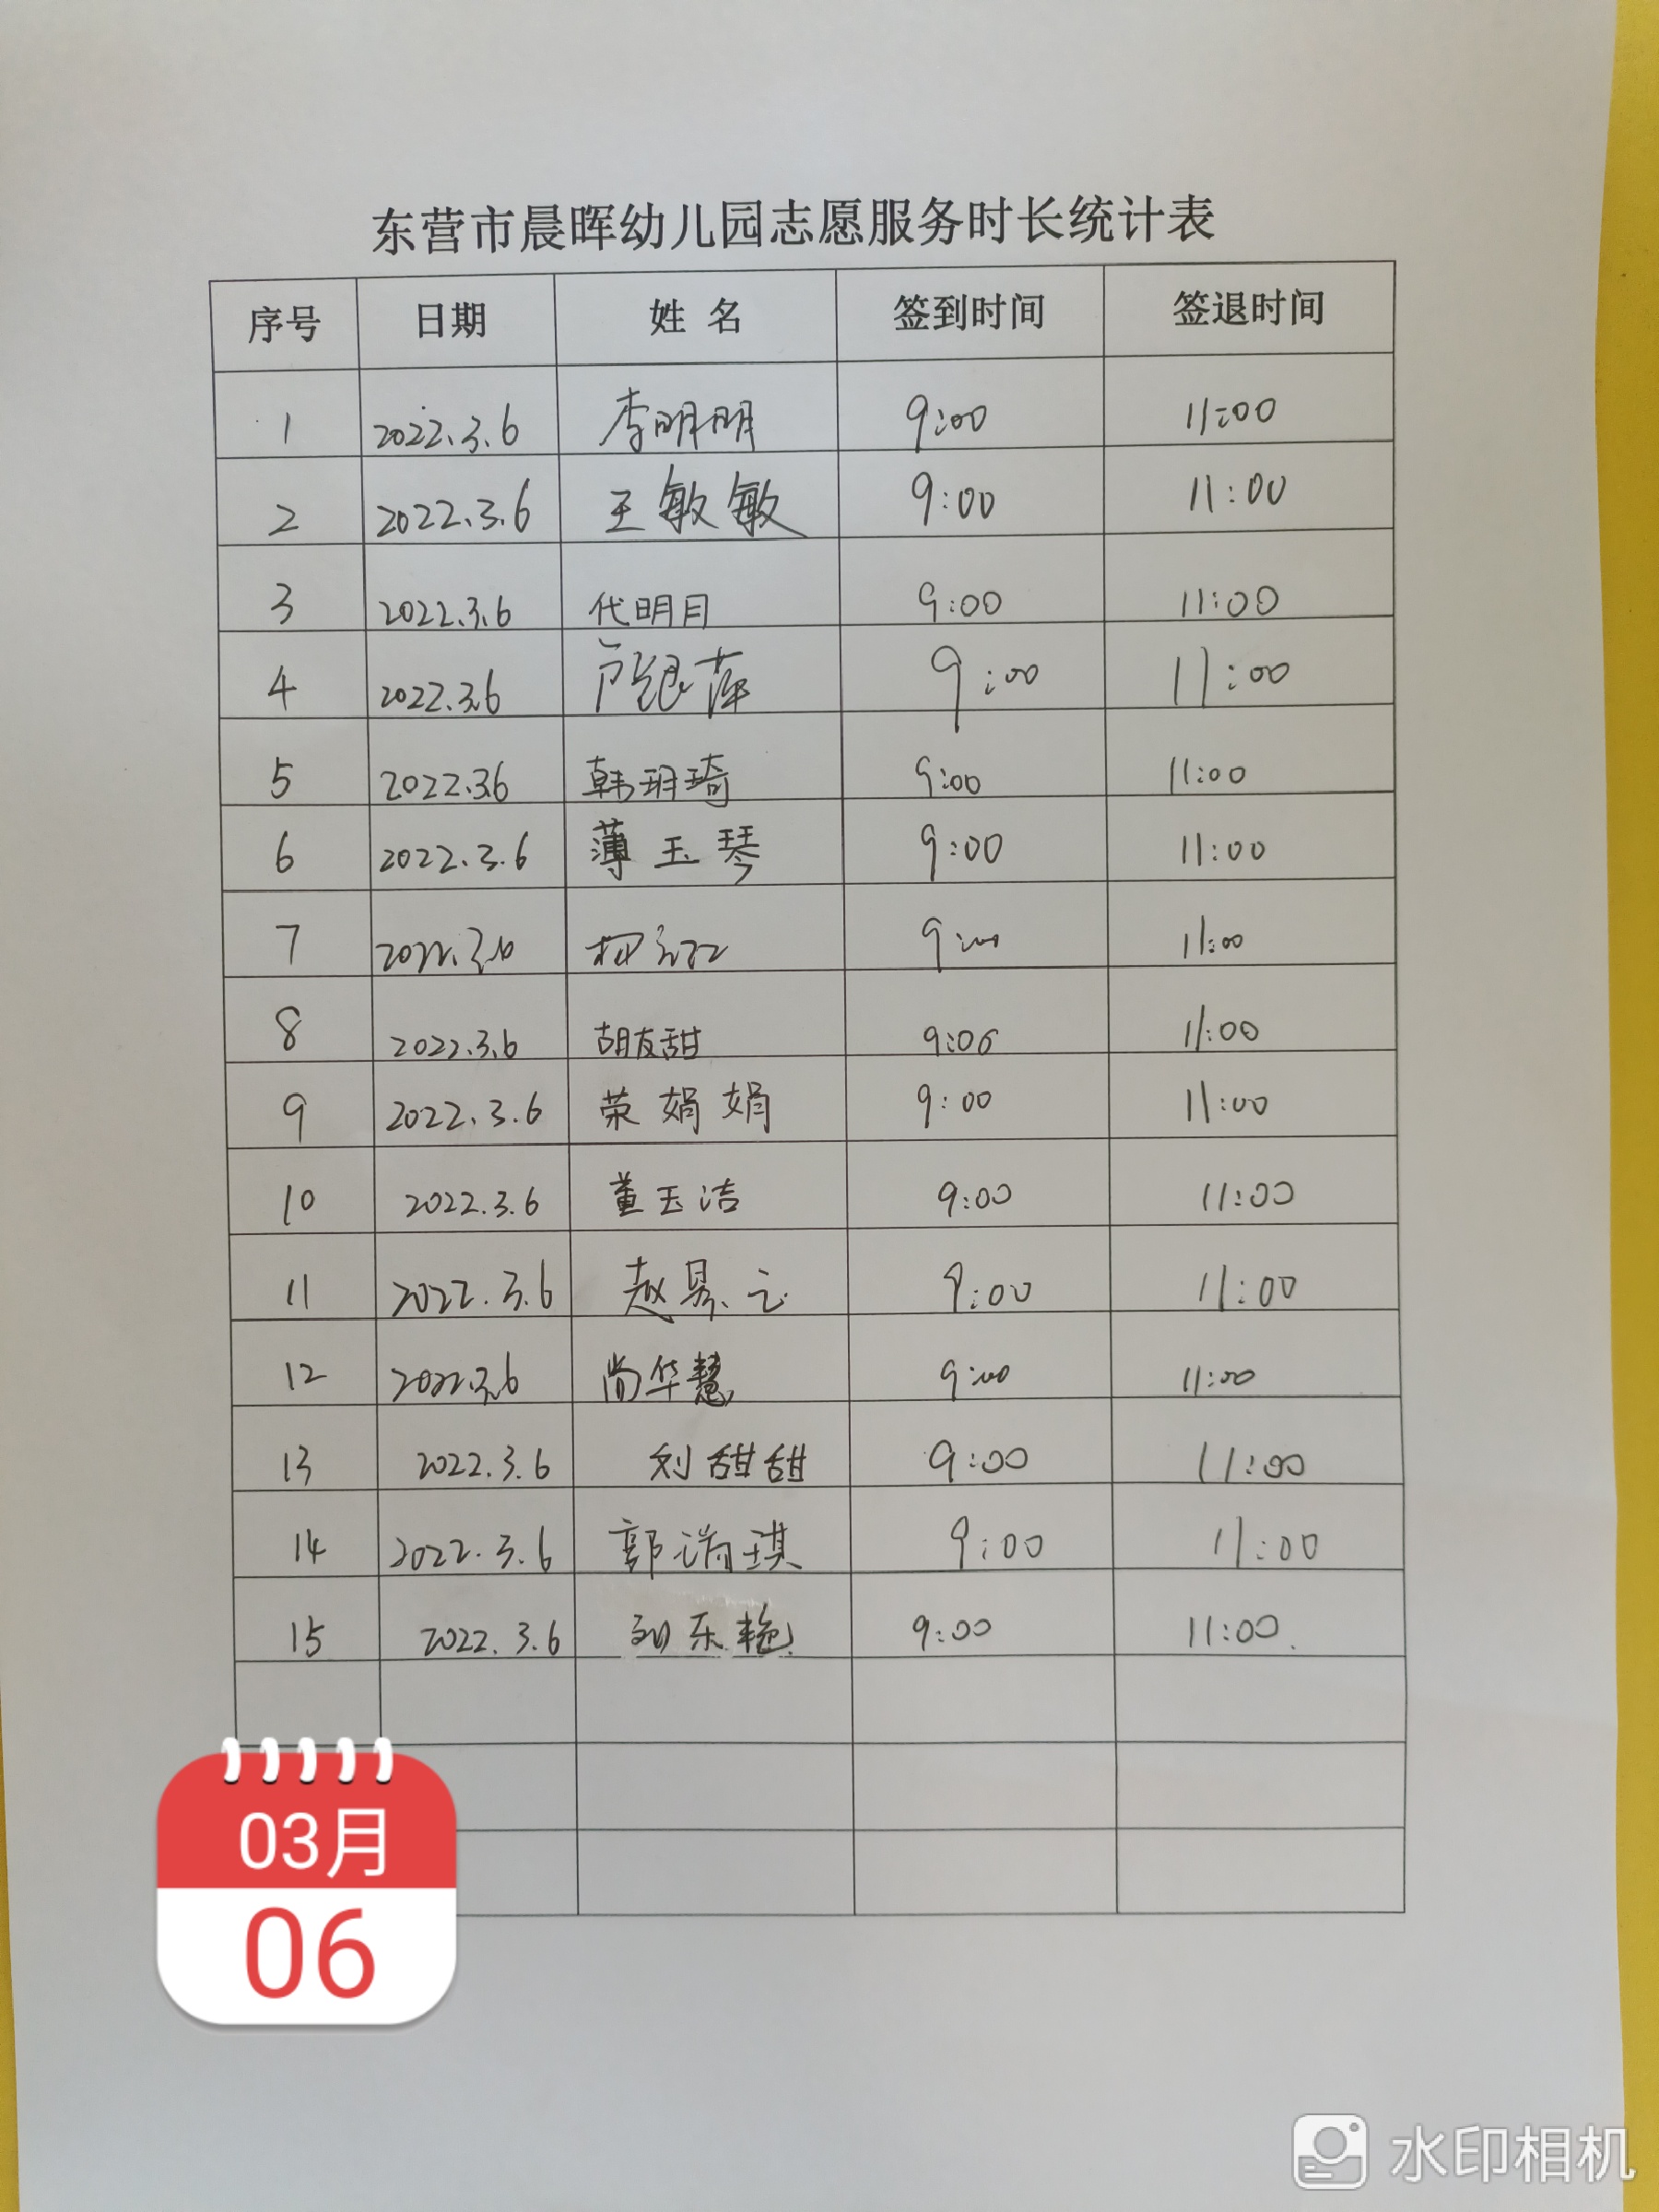 东营市晨晖幼儿园志愿服务时长统计表
序号 日期 姓名 签到时间 签退时间
1 2022.3.6 李明明 9:00 11:00
2 2022.3.6 王敏敏 9:00 11:00
3 2022.3.6 代明月 9:00 11:00
4 2022.3.6 卢银萍 9:00 11:00
5 2022.3.6 韩玥琦 9:00 11:00
6 2022.3.6 薄玉琴 9:00 11:00
7 2022.3.6 9:00 11:00
8 2022.3.6 胡友甜 9:00 11:00
9 2022.3.6 荣娟娟 9:00 11:00
10 2022.3.6 董玉洁 9:00 11:00
11 2022.3.6 赵 9:00 11:00
12 2022.3.6 尚华慧 9:00 11:00
13 2022.3.6 刘甜甜 9:00 11:00
14 2022.3.6 郭瑞琪 9:00 11:00
15 2022.3.6 东艳 9:00 11:00.
03月
06
水印相机